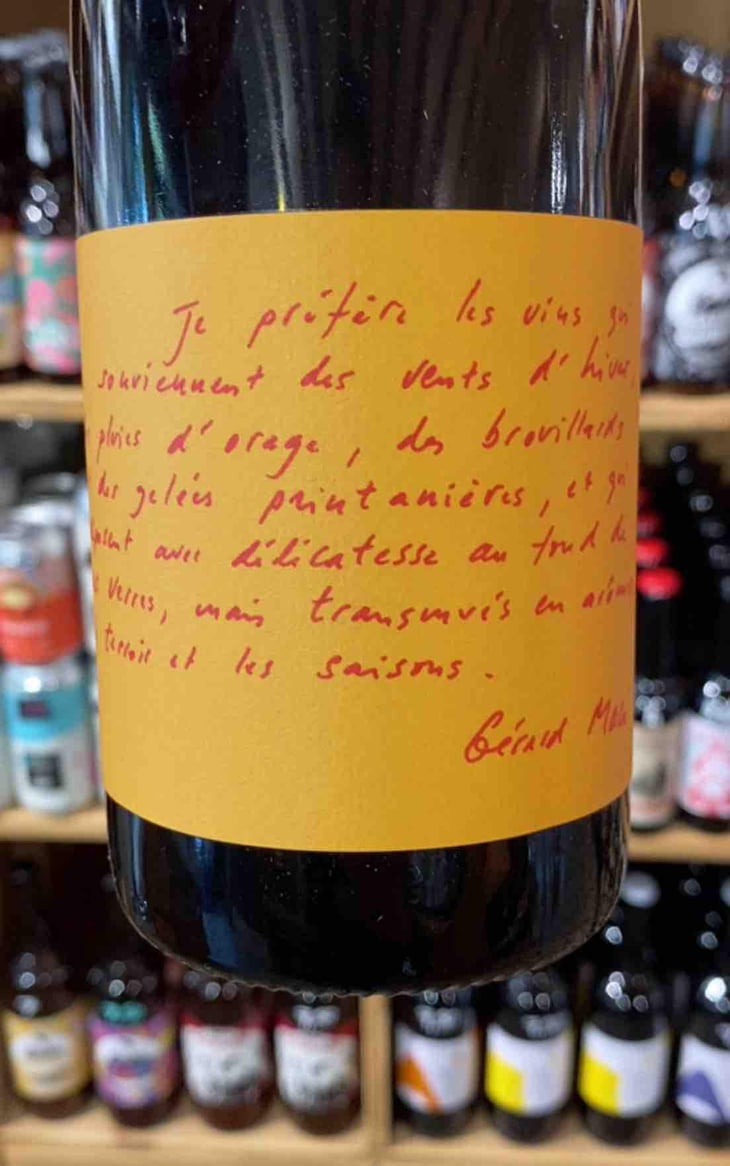 Je préfère les vins qui
souviennent des vents d'hiver,
pluies d'orage, des brouillards
des gelées printanières, et qui
avec délicatesse au fond de
verres, mais transmués en arômes
terroir et les saisons.
Gérard